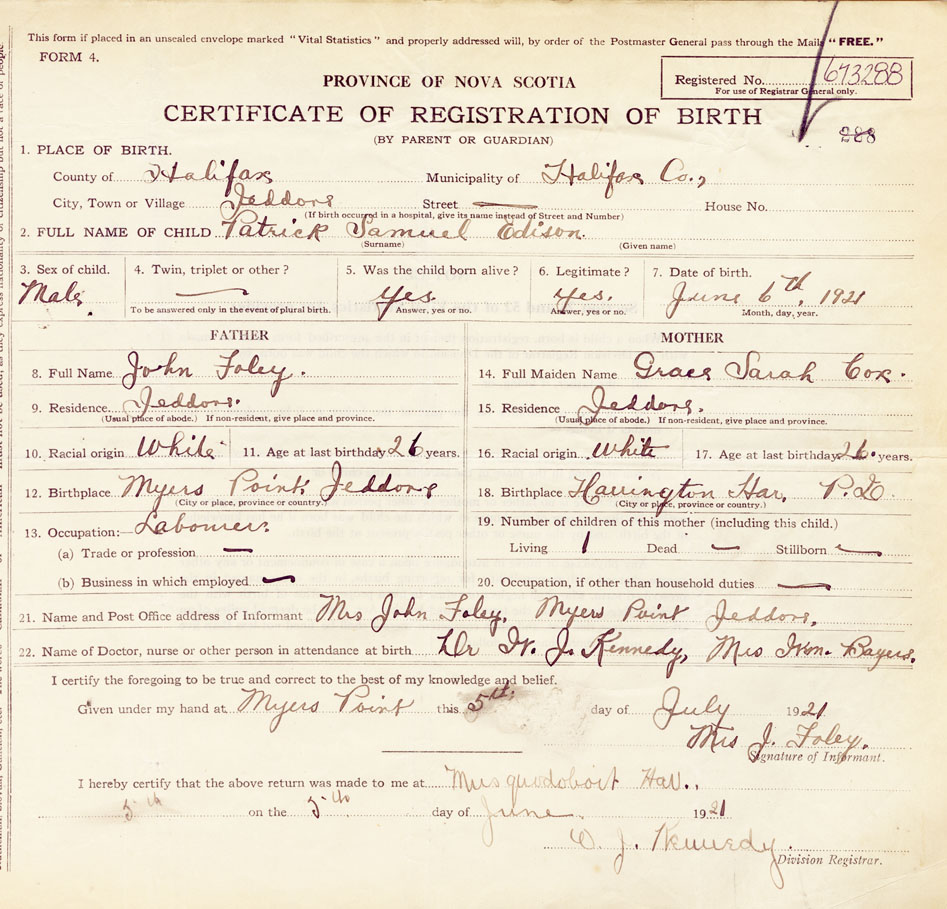 This form if placed in an unsealed envelope marked "Vital Statistics" and properly addressed will, by order of the Postmaster General pass through the Mails "FREE."
FORM 4.
PROVINCE OF NOVA SCOTIA
Registered No. 673288
For use of Registrar General only.
CERTIFICATE OF REGISTRATION OF BIRTH
288
(BY PARENT OR GUARDIAN)
1. PLACE OF BIRTH.
County of Halifax Municipality of Halifax Co.,
City, Town or Village Jeddore Street — House No.
(If birth occurred in a hospital, give its name instead of Street and Number)
2. FULL NAME OF CHILD Patrick Samuel Edison.
(Surname) (Given name)
3. Sex of child. 4. Twin, triplet or other? 5. Was the child born alive? 6. Legitimate? 7. Date of birth.
Male. — yes. yes. June 6th, 1921
To be answered only in the event of plural birth. Answer, yes or no. Answer, yes or no. Month, day, year.
FATHER MOTHER
8. Full Name John Foley. 14. Full Maiden Name Grace Sarah Cox.
9. Residence Jeddore. 15. Residence Jeddore.
(Usual place of abode.) If non-resident, give place and province. (Usual place of abode.) If non-resident, give place and province.
10. Racial origin White 11. Age at last birthday 26 years. 16. Racial origin White 17. Age at last birthday 26. years.
12. Birthplace Myers Point Jeddore 18. Birthplace Harrington Har,
(City or place, province or country.) (City or place, province or country.)
13. Occupation:— Labourer. 19. Number of children of this mother (including this child.)
(a) Trade or profession — Living 1 Dead — Stillborn —
(b) Business in which employed — 20. Occupation, if other than household duties —
21. Name and Post Office address of Informant Mrs John Foley, Myers Point Jeddore.
22. Name of Doctor, nurse or other person in attendance at birth Dr W. J. Kennedy, Mrs Wm. Bayers.
I certify the foregoing to be true and correct to the best of my knowledge and belief.
Given under my hand at Myers Point this 5th. day of July 1921
Mrs J. Foley.
Signature of Informant.
I hereby certify that the above return was made to me at Musquodoboit Har.,
5th on the 5th day of June 1921
W. J. Kennedy.
Division Registrar.